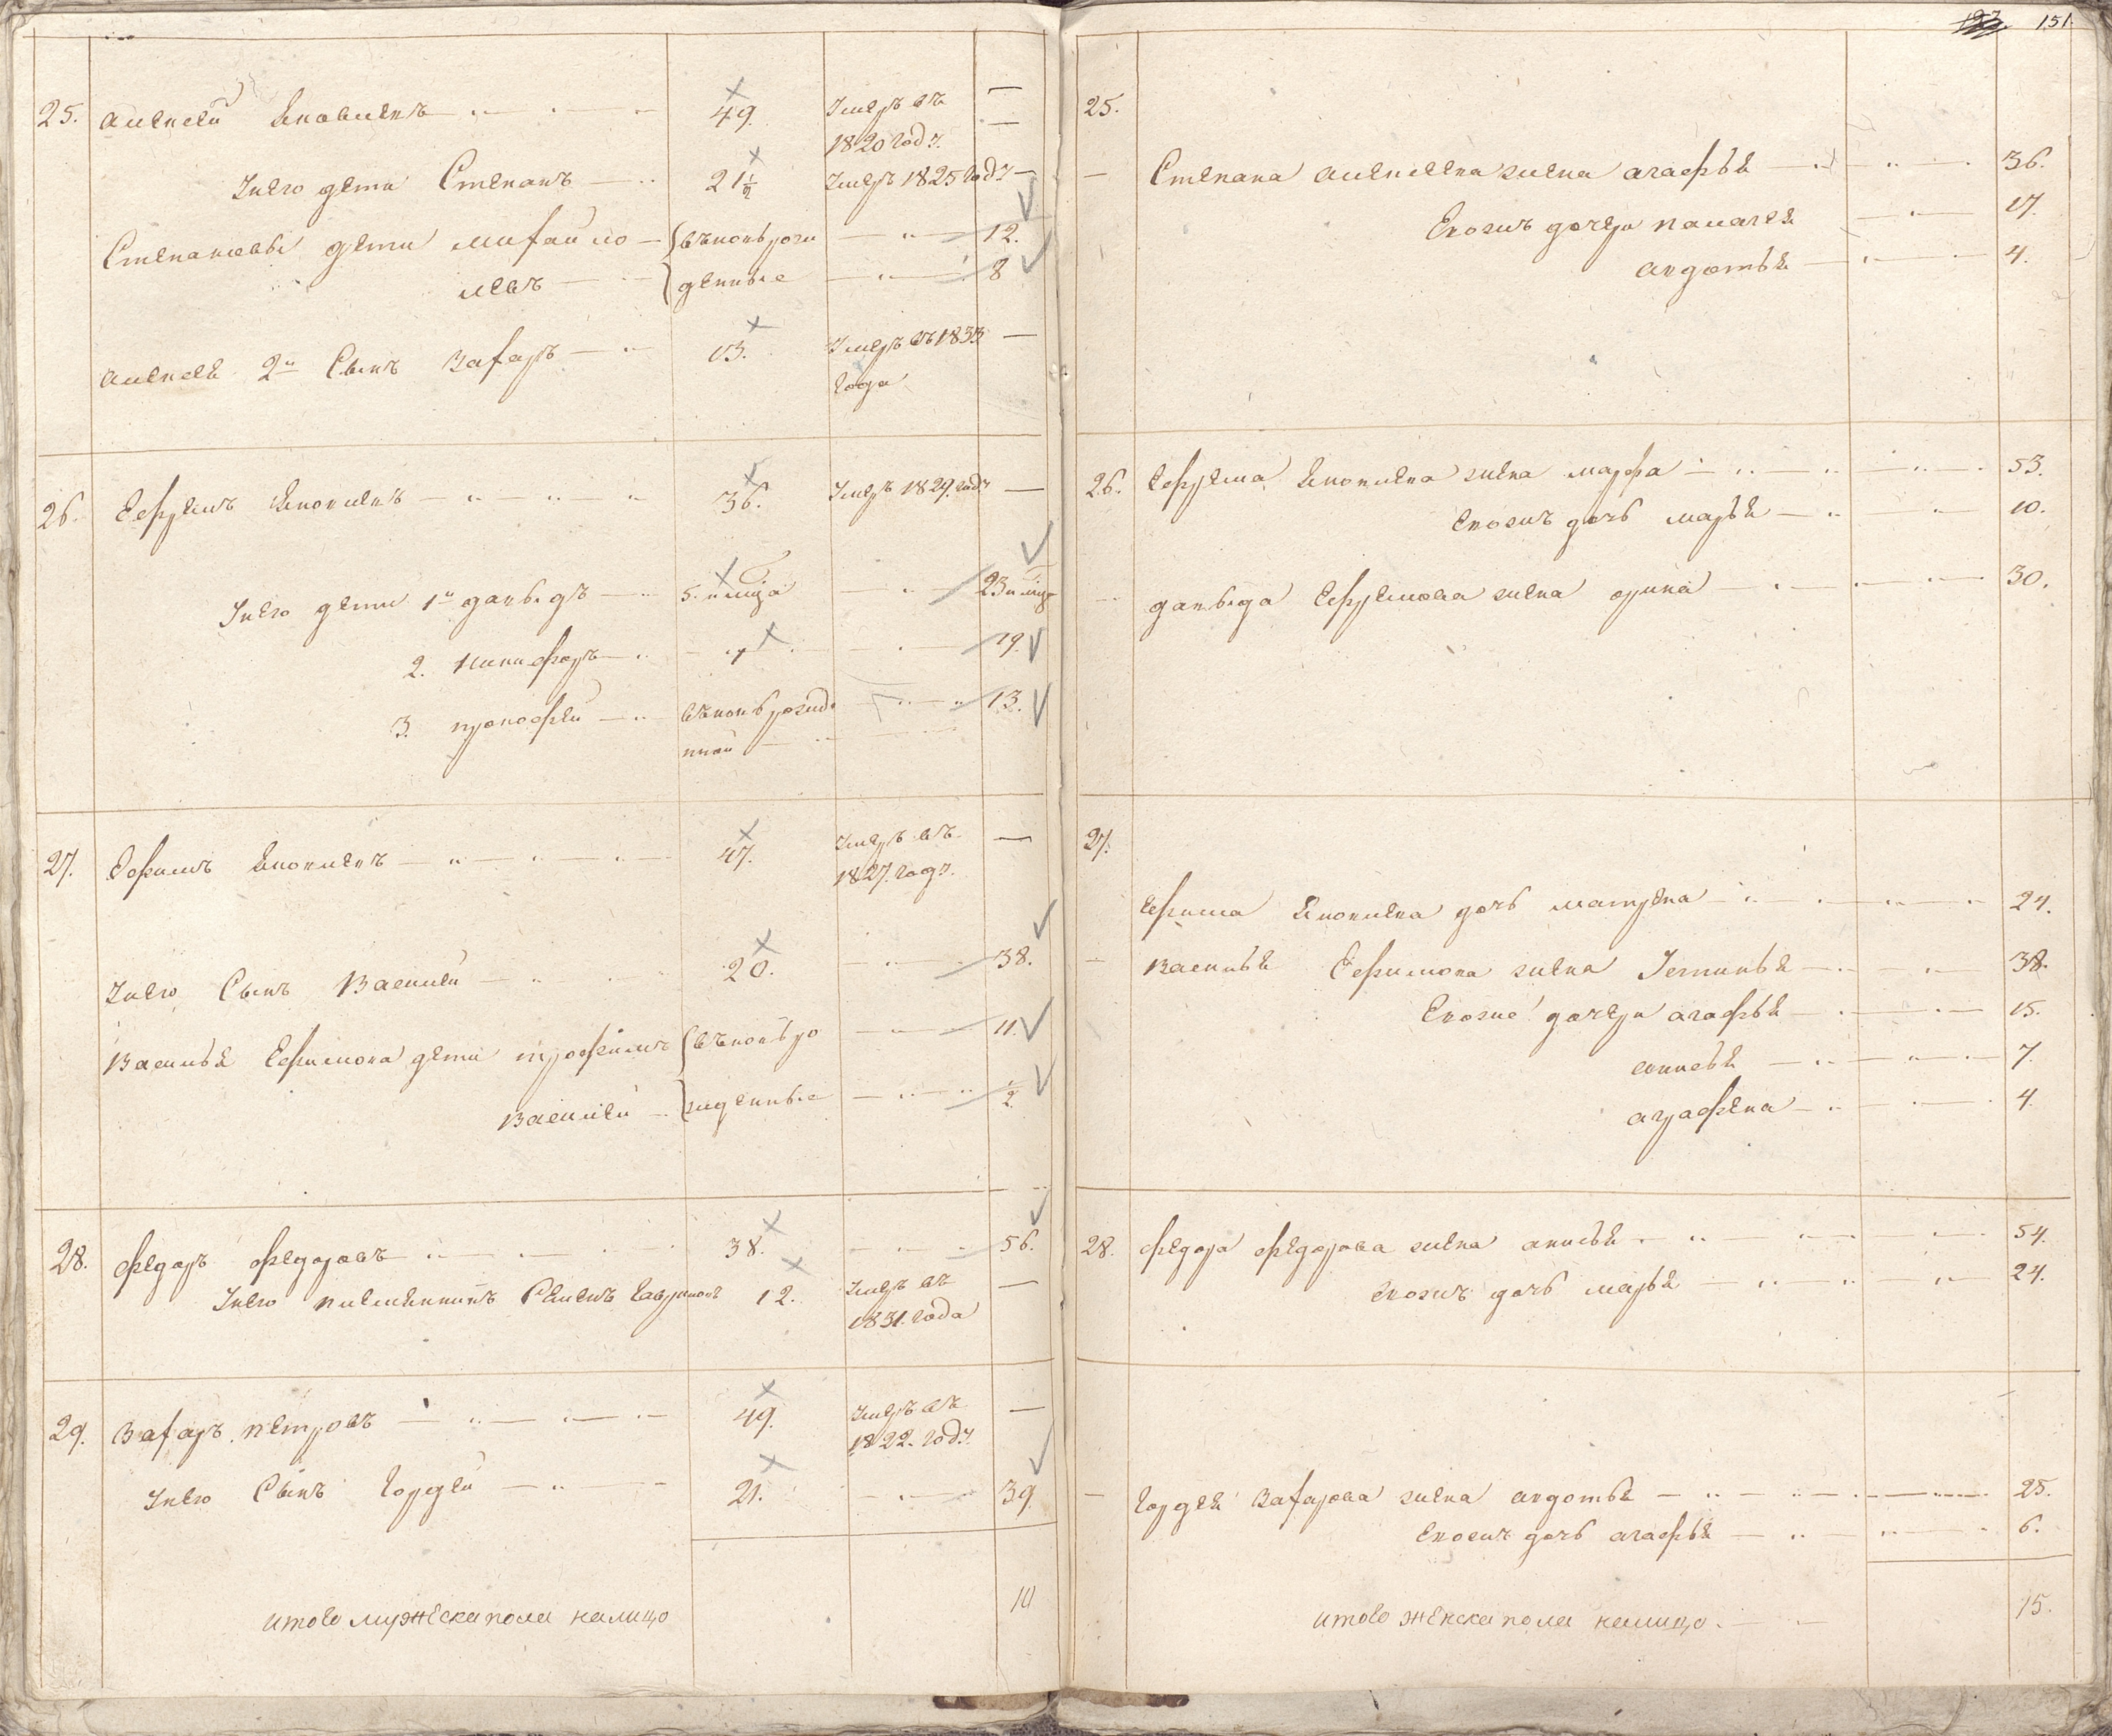 25. Алексей Яковлевъ 49. Умеръ въ —
1820 году.
У нево дети Степанъ 21½ Умеръ 1825 году —
Степановы дети Михайло вновь рож 12.
Левъ денные 8
Алексея 2й Сынъ Захаръ 13. Умеръ въ 1833 —
года
26. Ефремъ Яковлевъ 36. Умеръ 1829 году —
У нево дети 1й давыдъ 5. месяца 23
2. Никифоръ 1 19.
3. прокофей вновь рожде 13.
нной
27. Ефимъ Яковлевъ 47. Умеръ въ —
1827. году.
У нево Сынъ Василей 20. 38.
Василья Ефимова дети трофимъ вновь ро 11.
Василей жденные ½
28. федоръ федоровъ 38. 56.
У нево племянникъ Семенъ 12. Умеръ въ —
1831. года
29. Захаръ петровъ 49. Умеръ въ —
1822. году.
У нево Сынъ Гордей 21. 39
итого мужеска пола налицо 10
151.
25.
— Степана Алексеева жена агафья 36.
Ею жъ дочери пелагея 17.
авдотья 4.
26. Ефрема Яковлева жена марфа 53.
Ево жъ дочь марья 10.
давыда Ефремова жена орина 30.
27.
Ефима Яковлева дочь матрена 24.
— Василья Ефимова жена Устинья 38.
Ево же дочери агафья 15.
7.
аграфена 4.
28. федора федорова жена анисья 54.
Ево жъ дочь марья 24.
— Гордея Захарова жена авдотья 25.
Ево жъ дочь агафья 6.
итого женска пола налицо. 15.